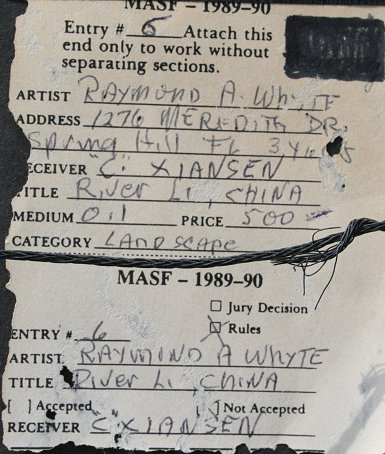 MASF - 1989-90
Entry # 6 Attach this
end only to work without
separating sections.
ARTIST RAYMOND A. WHYTE
ADDRESS 1276 MEREDITH DR.
Spring Hill FL
RECEIVER "C." XIANSEN
TITLE River Li, CHINA
MEDIUM Oil PRICE 500
CATEGORY LANDSCAPE
MASF - 1989-90
Jury Decision
ENTRY # 6 Rules
ARTIST RAYMOND A WHYTE
TITLE River Li, CHINA
[ ] Accepted [ ] Not Accepted
RECEIVER "C" XIANSEN